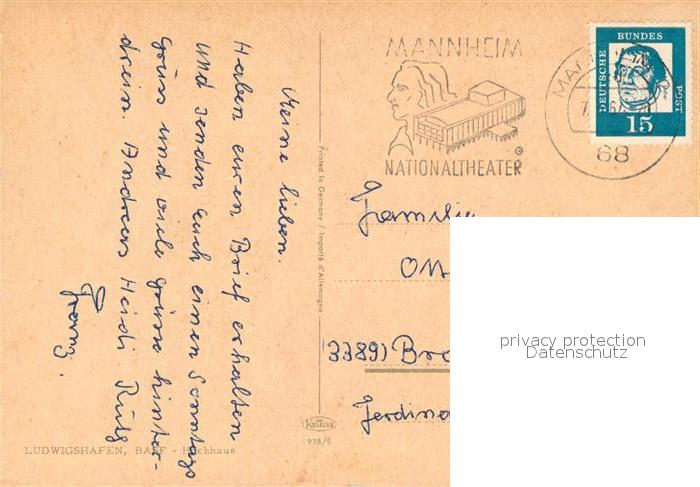 Meine lieben.
Haben euren Brief erhalten
und senden Euch einen Sonntags
Gruss und viele Grüsse hinter-
drein. Andreas Heidi Ruth
Franz.
LUDWIGSHAFEN, BASF - Hochhaus
Printed in Germany / Importé d'Allemagne
KRÜGER
978/5
MANNHEIM
NATIONALTHEATER
68
DEUTSCHE
BUNDES
POST
15
Familie
Ott
(3389) Bre
Ferdina
privacy protection
Datenschutz